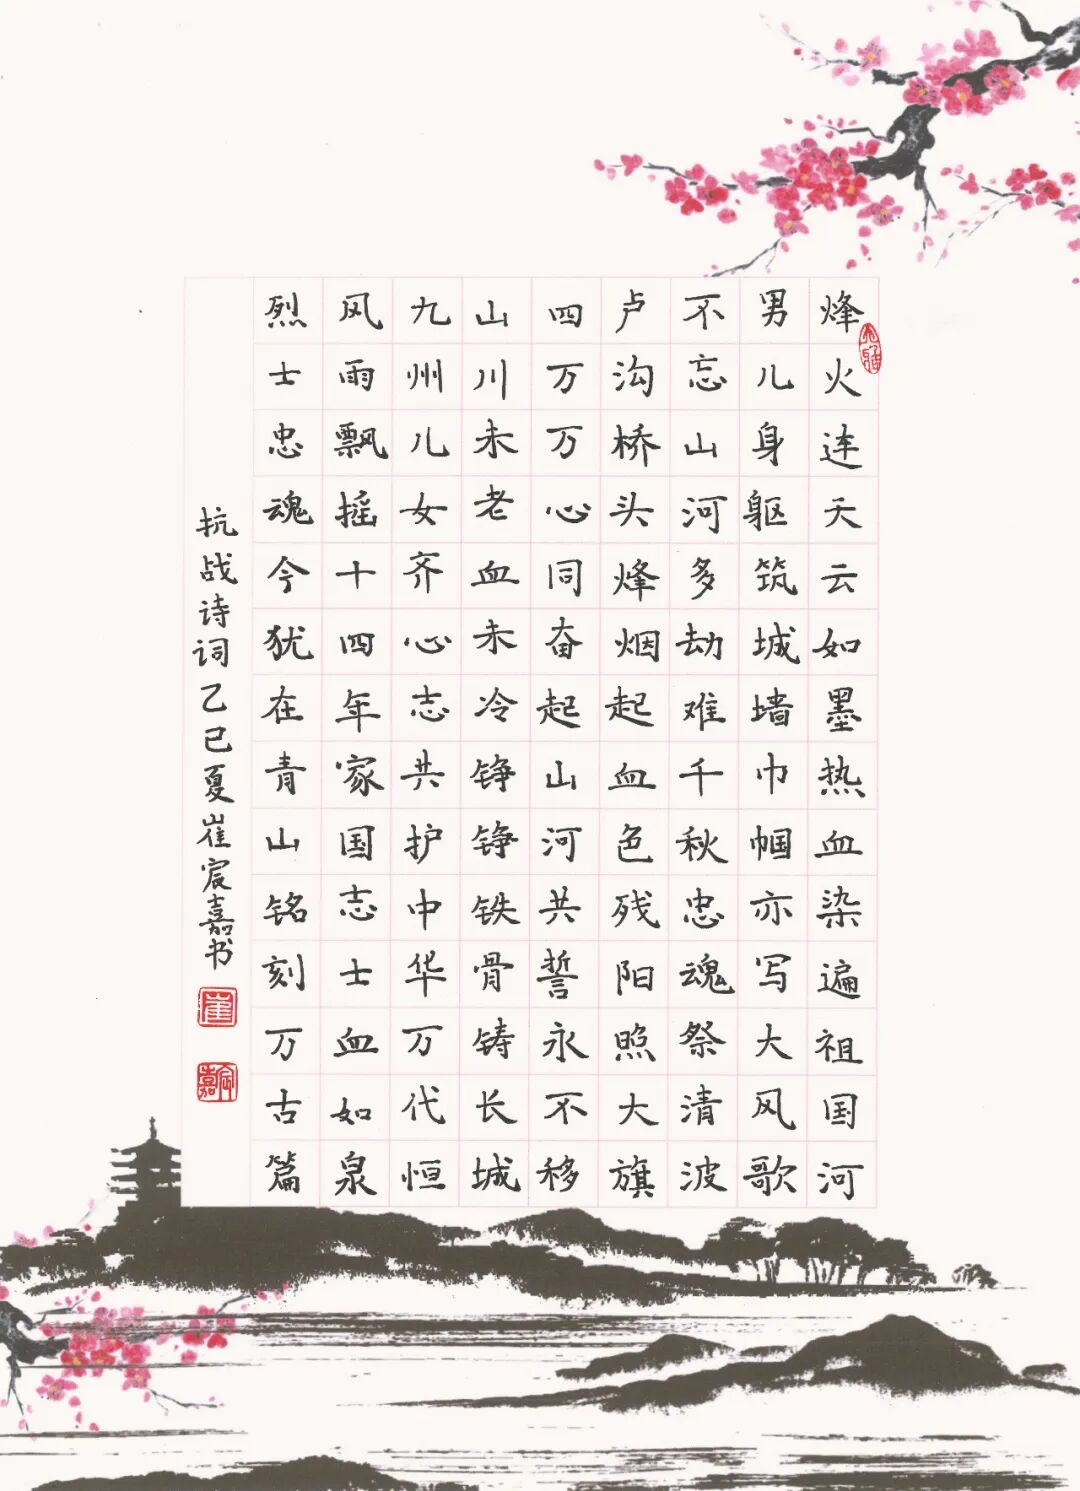 烽火连天云如墨热血染遍祖国河
男儿身躯筑城墙巾帼亦写大风歌
不忘山河多劫难千秋忠魂祭清波
卢沟桥头烽烟起血色残阳照大旗
四万万心同奋起山河共誓永不移
山川未老血未冷铮铮铁骨铸长城
九州儿女齐心志共护中华万代恒
风雨飘摇十四年家国志士血如泉
烈士忠魂今犹在青山铭刻万古篇
抗战诗词乙巳夏崔宸嘉书
崔
宸嘉